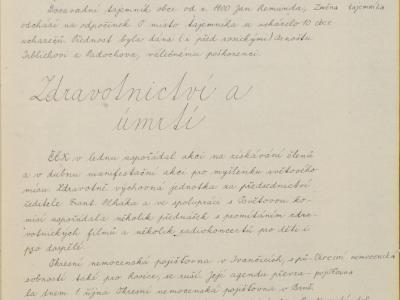 Dosavadní tajemník obce od r. 1900 Jan Remunda, Změna tajemníka
odchází na odpočinek O místo tajemníka se ucházelo 10 obce
uchazečů. Přednost byla dána (i před rosickými) Arnoštu
Jeblichovi z Padochova, válečnému poškozenci.
Zdravotnictví a
úmrtí
ČČK v lednu uspořádal akci na získávání členů
a v dubnu manifestační akce pro myšlenku světového
míru. Zdravotně výchovná jednotka za předsednictví
ředitele Frant. Vlháka a ve spolupráci s Světovou ko-
misí uspořádala několik přednášek s promítáním zdra-
votnických filmů a několik radiokoncertů pro děti i
pro dospělé.
Okresní nemocenská pojišťovna v Ivančicích, s pů- Okresní nemocenská
sobností také pro Rosice, se ruší. Její agendu převza- pojišťovna
la dnem 1. října Okresní nemocenská pojišťovna v Brně.